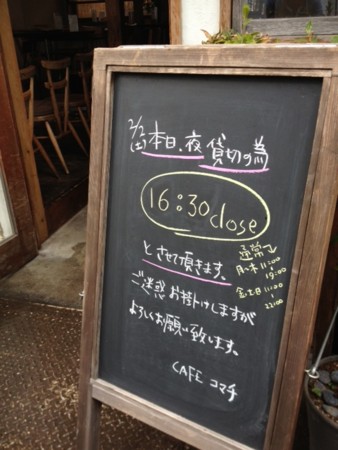 2/2(土)本日、夜 貸切の為
16:30 close
とさせて頂きます。
ご迷惑お掛けしますが
よろしくお願い致します。
CAFE コマチ
通常↓
月〜木 11:00
↓
19:00
金土日 11:00
↓
22:00